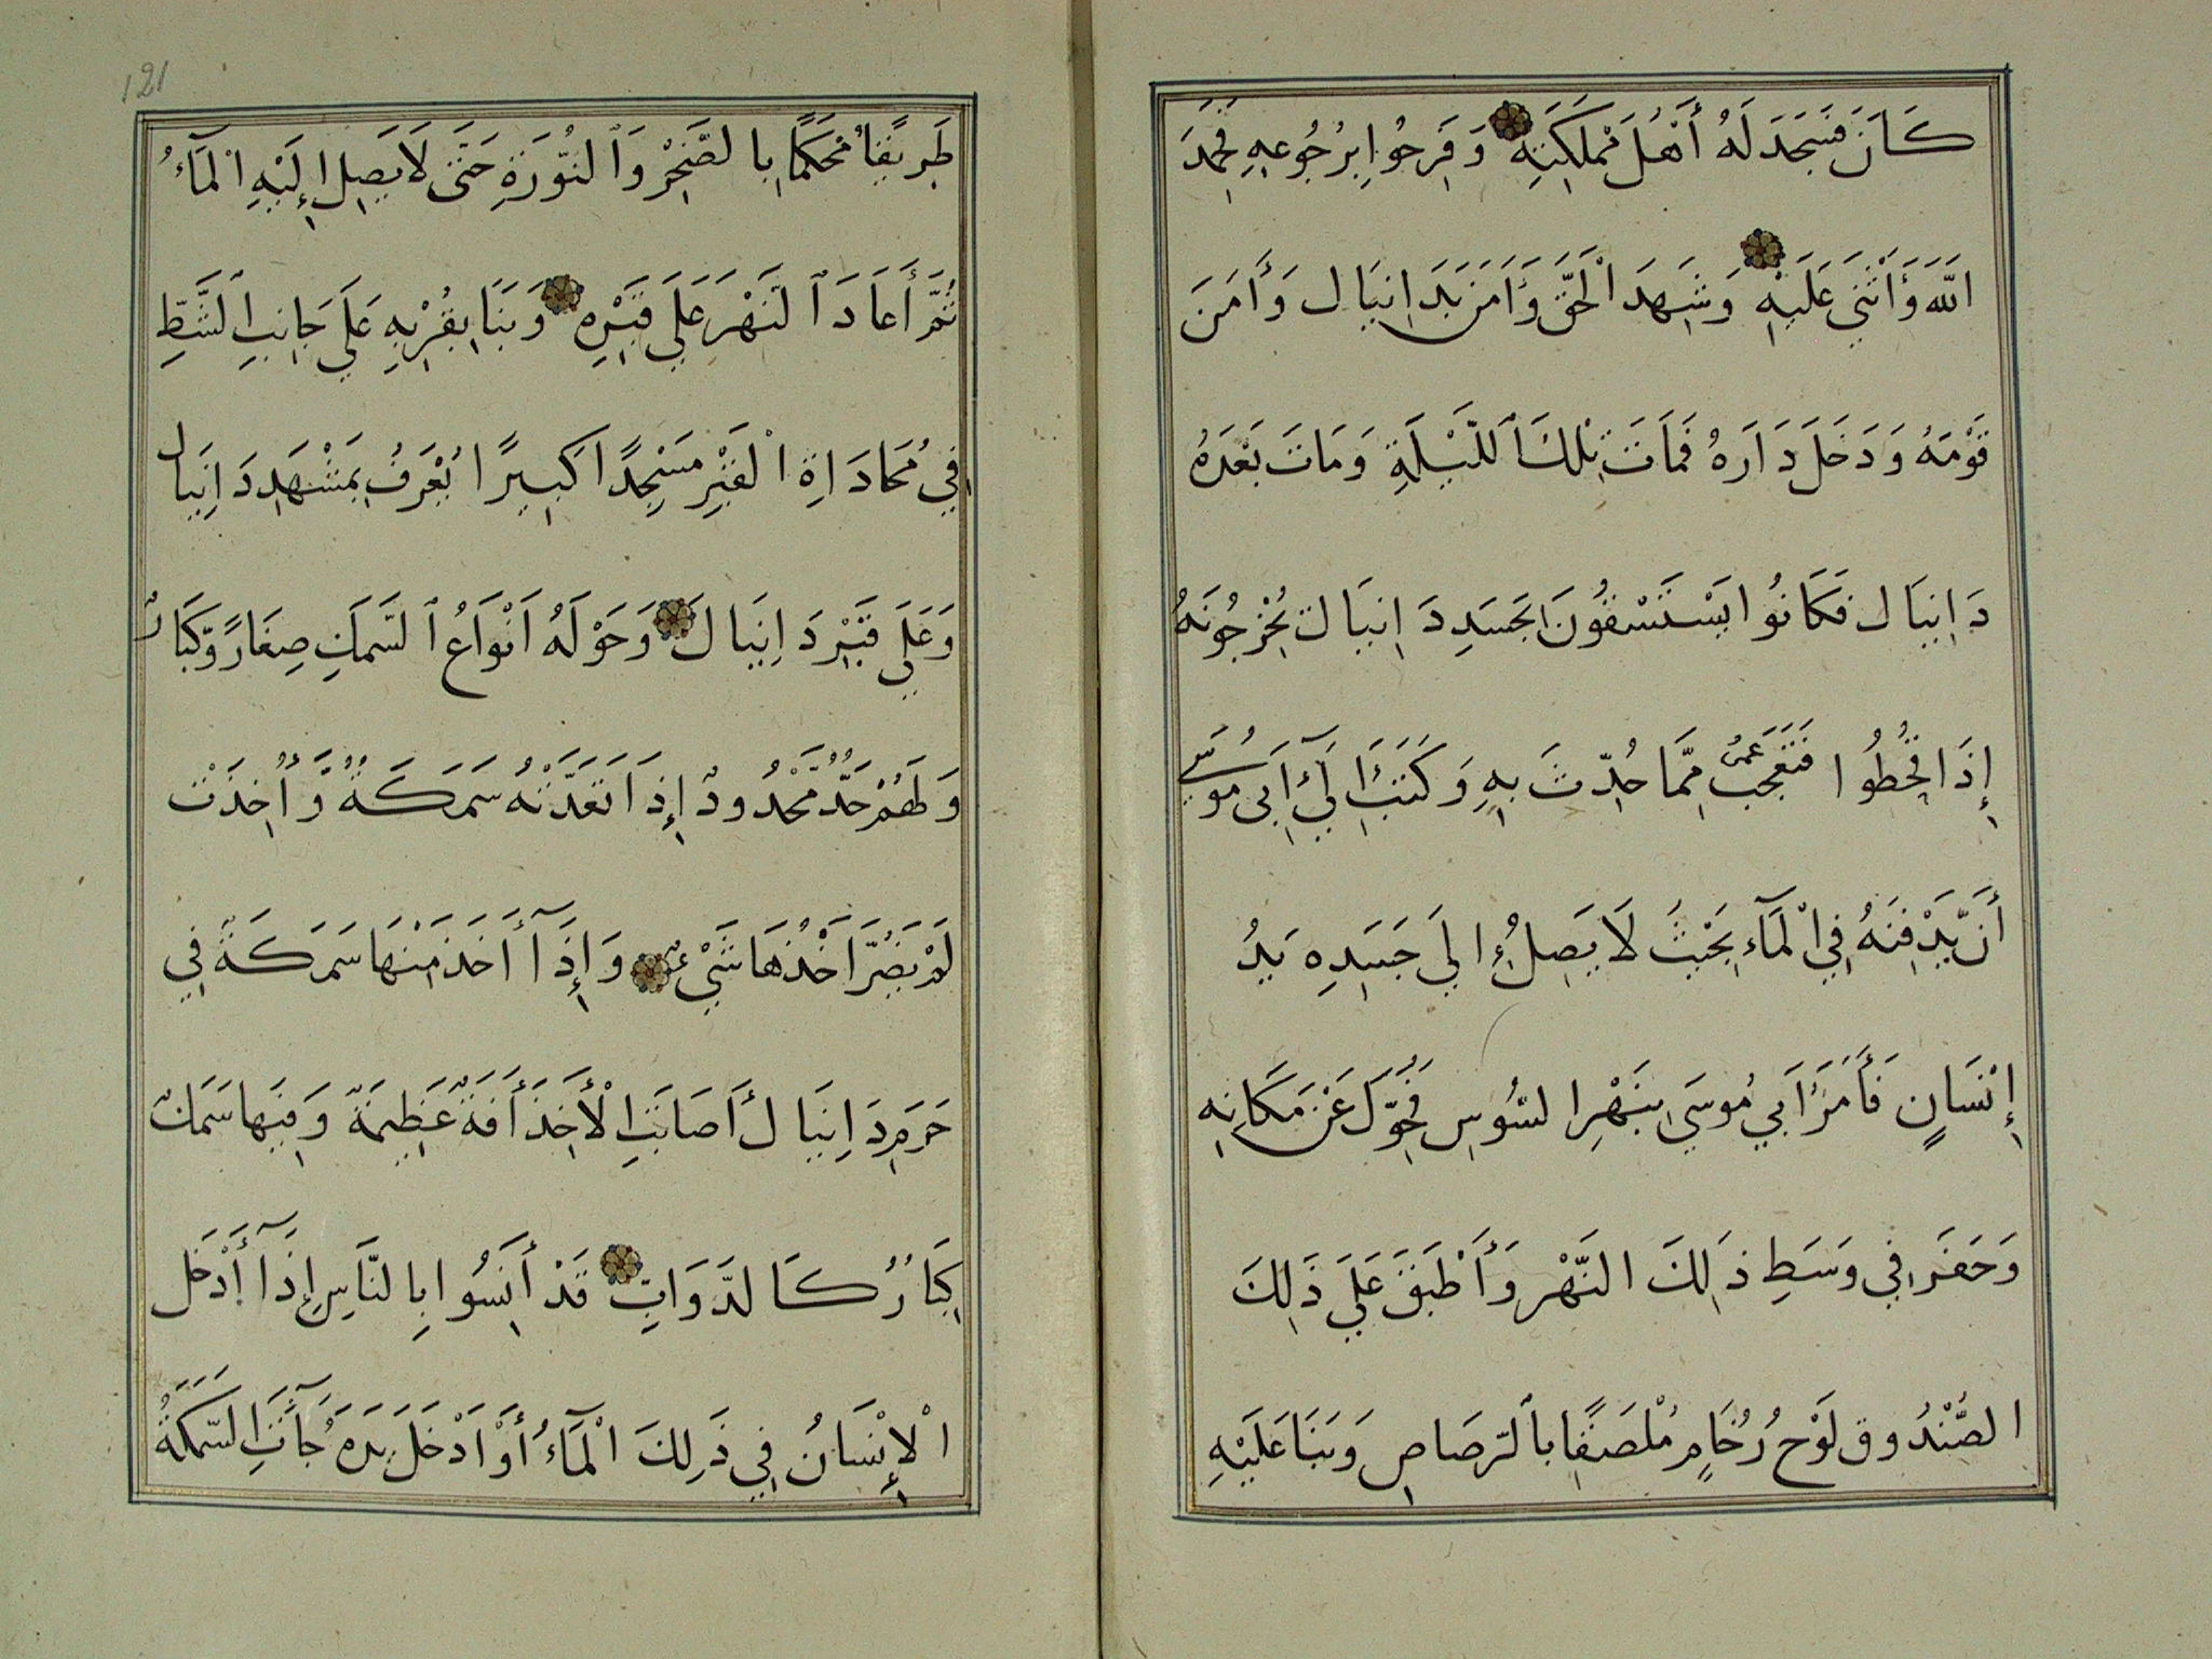 كَانَ فَسَجَدَ لَهُ أَهْلُ مَمْلَكَتِهِ وَفَرِحُوا بِرُجُوعِهِ فَحَمِدَ
اللَّهَ وَأَثْنَى عَلَيْهِ وَشَهِدَ الْحَقَّ وَأَمَنَ بِدَانِيَال وَأَمَنَ
قَوْمَهُ وَدَخَلَ دَارَهُ فَمَاتَ تِلْكَ ٱللَّيْلَةِ وَمَاتَ بَعْدَهُ
دَانِيَال فَكَانُوا يَسْتَسْقُونَ بِجَسَدِ دَانِيَال يُخْرِجُونَهُ
إِذَا قُحِطُوا فَتَعَجَّبَ عُمَرُ مِمَّا حُدِّثَ بِهِ وَكَتَبَ إِلَىٓ أَبِى مُوسَى
أَنْ يَدْفِنَهُ فِي الْمَآءِ بِحَيْثُ لَا يَصِلُ إِلَي جَسَدِهِ يَدُ
إِنْسَانٍ فَأَمَرَ أَبِي مُوسَي بِنَهْرِ السُّوسِ فَحُوِّلَ عَنْ مَكَانِهِ
وَحَفَرَ فِي وَسَطِ ذَلِكَ النَّهْرِ وَأَطْبَقَ عَلَي ذَلِكَ
الصُّنْدُوق لَوْح رُخَامٍ مُلْصَقًا بِٱلرَّصَاصِ وَبَنَا عَلَيْهِ
121
طَرِيقًا مُحْكَمًا بِالصَّخْرِ وَٱلنُّورَةِ حَتَّى لَا يَصِل إِلَيْهِ الْمَآءُ
ثُمَّ أَعَادَ ٱلنَّهْرَ عَلَي قَبْرِهِ وَبَنَا بِقُرْبِهِ عَلَي جَانِبِ ٱلشَّطِّ
فِي مُحَادَاةِ الْقَبْرِ مَسْجِدًا كَبِيرًا يُعْرَفُ بِمَشْهَدِ دَانِيَال
وَعَلَي قَبْرِ دَانِيَالَ وَحَوْلَهُ أَنْوَاعُ ٱلسَّمَكِ صِغَارٌ وَّكِبَارٌ
وَلَهُمْ حَدٌّ مَّحْدُودٌ إِذَا تَعَدَّتْهُ سَمَكَةٌ وَّأُخِذَتْ
لَمْ يَضُرَّ أَخْذُهَا شَيْءٌ وَإِذَآ أَخَذَ مِنْهَا سَمَكَةً فِي
حَرَمِ دَانِيَال أَصَابَتِ الْأَخِذَ أَفَةٌ عَظِيمَةٌ وَفِيهَا سَمَكٌ
كِبَارٌ كَالدَّوَابِ قَدْ أَنِسُوا بِالنَّاسِ إِذَآ أَدْخَل
الْإِنْسَانُ فِي ذَلِكَ الْمَآءِ أَوْ أَدْخَلَ يَدَهُ جَآءَتِ السَّمَكَةُ